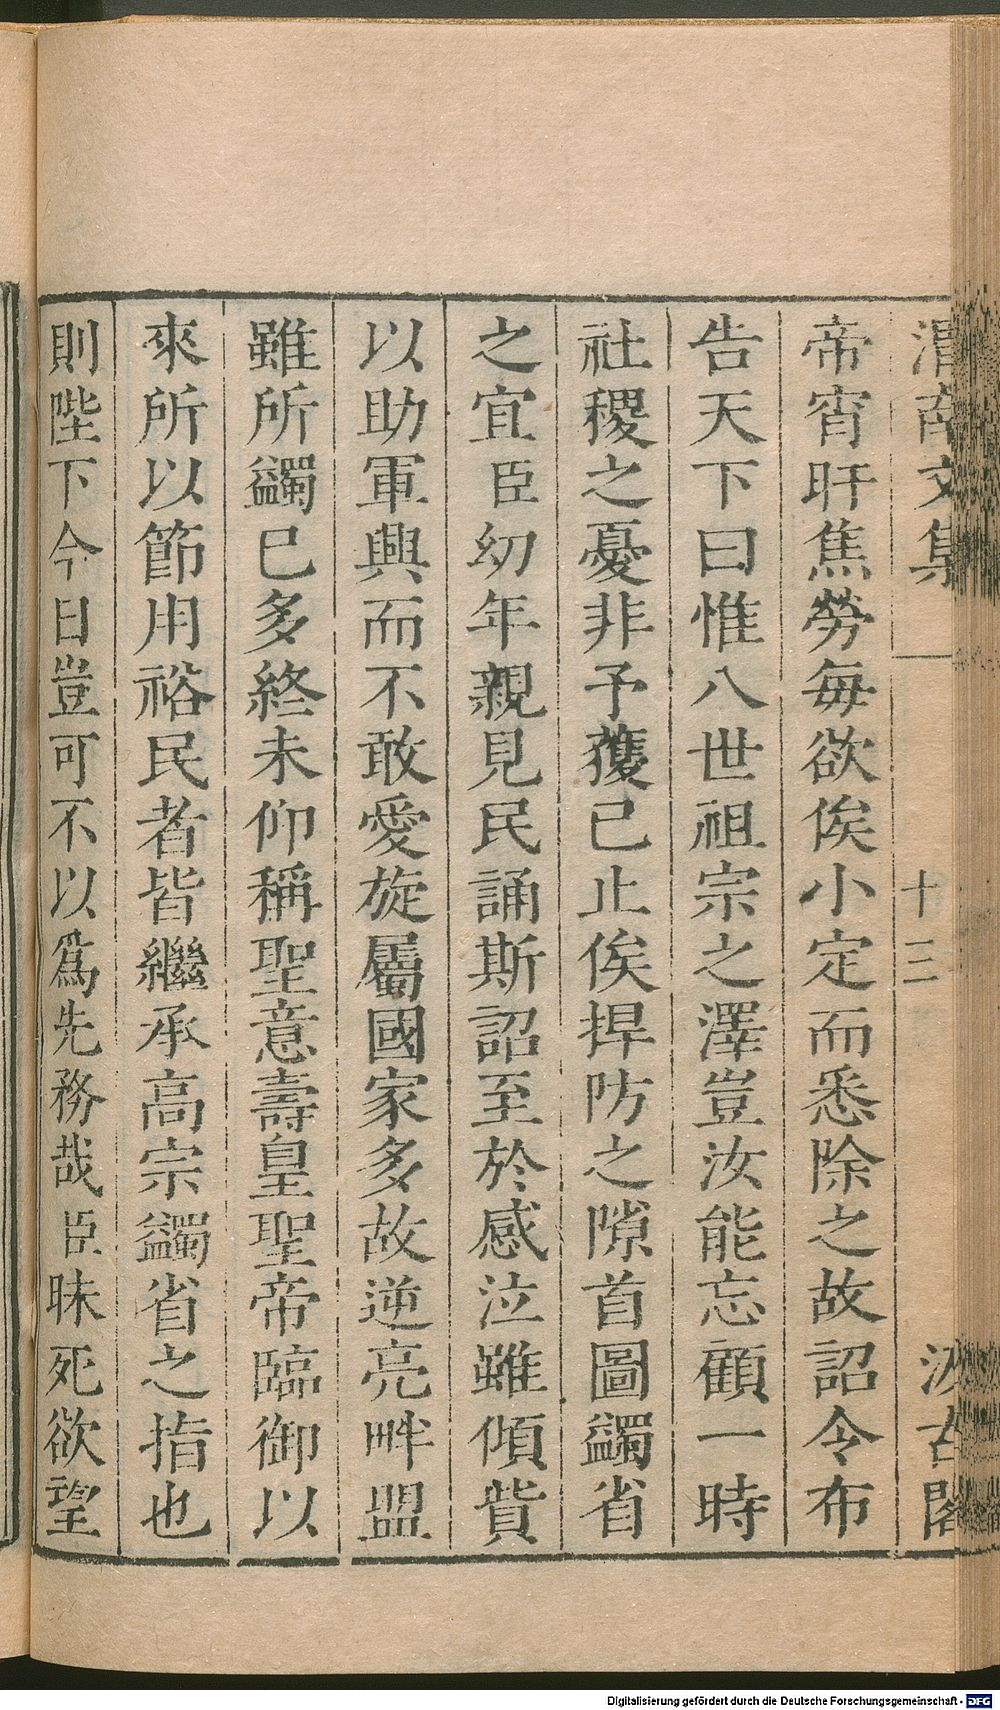 渭南文集 十三 汲古閣
帝宵旰焦勞每欲俟小定而悉除之故詔令布
告天下曰惟八世祖宗之澤豈汝能忘顧一時
社稷之憂非予獲已止俟捍防之隙首圖蠲省
之宜臣幼年親見民誦斯詔至於感泣雖傾貲
以助軍興而不敢愛旋屬國家多故逆亮畔盟
雖所蠲已多終未仰稱聖意壽皇聖帝臨御以
來所以節用裕民者皆繼承高宗蠲省之指也
則陛下今日豈可不以爲先務哉臣昧死欲望
Digitalisierung gefördert durch die Deutsche Forschungsgemeinschaft - DFG